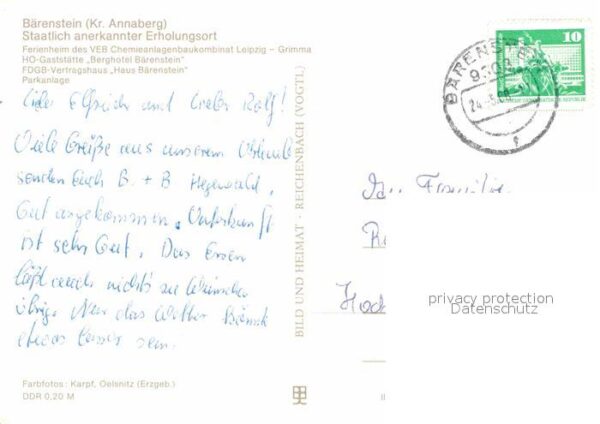 Bärenstein (Kr. Annaberg)
Staatlich anerkannter Erholungsort
Ferienheim des VEB Chemieanlagenbaukombinat Leipzig – Grimma
HO-Gaststätte „Berghotel Bärenstein"
FDGB-Vertragshaus „Haus Bärenstein"
Parkanlage
Liebe und lieber Rolf!
Viele Grüße aus unserem Urlaub
senden Euch B. + B Hegewald,
Gut angekommen, Unterkunft
ist sehr Gut, Das Essen
läßt auch nichts zu Wünschen
übrig. Nur das Wetter könnte
etwas besser sein.
Farbfotos: Karpf, Oelsnitz (Erzgeb.)
DDR 0,20 M
BILD UND HEIMAT · REICHENBACH (VOGTL)
10
BÄRENSTEIN
Familie
privacy protection
Datenschutz